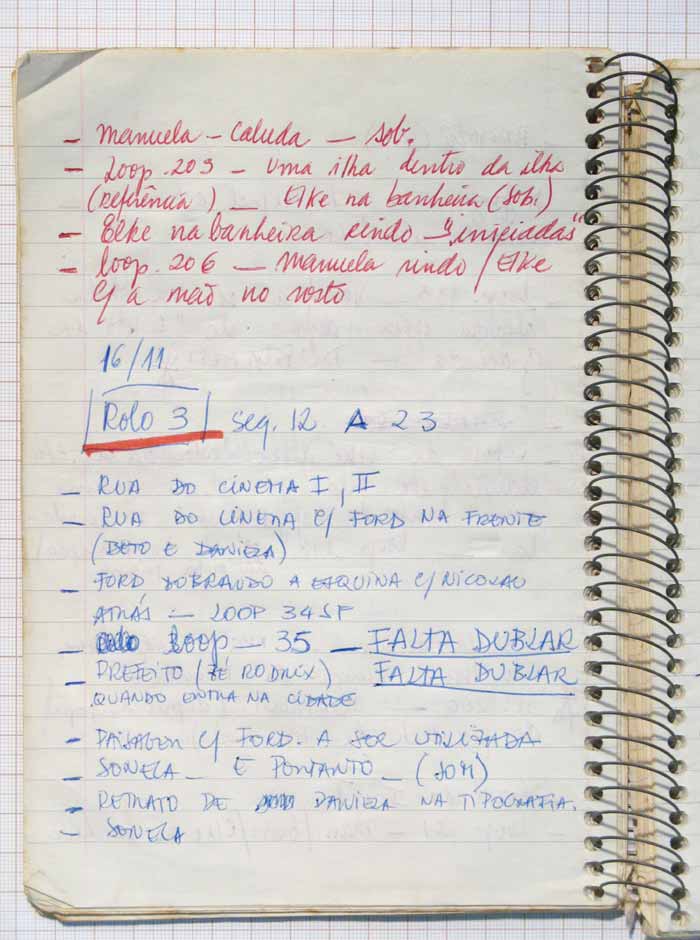 - Manuela - Caluda - sob.
- Loop. 205 - uma ilha dentro da ilha
(referência) - Elke na banheira (sob.)
- Elke na banheira rindo - "iniciadas"
- loop. 206 - Manuela rindo / Elke
c/ a mão no rosto
16/11
Rolo 3 seq. 12 A 23
- RUA DO CINEMA I, II
- RUA DO CINEMA C/ FORD NA FRENTE
(BETO E DANIELA)
- FORD DOBRANDO A ESQUINA C/ NICOLAU
ATRÁS - LOOP 34 SF
- Loop - 35 - FALTA DUBLAR
- PREFEITO (ZÉ RODRIX) FALTA DUBLAR
QUANDO ENTRA NA CIDADE
- PAISAGEM C/ FORD. A SER UTILIZADA
- SONELA - E PORTANTO - (SOM)
- RETRATO DE DANIELA NA TIPOGRAFIA.
- SONELA